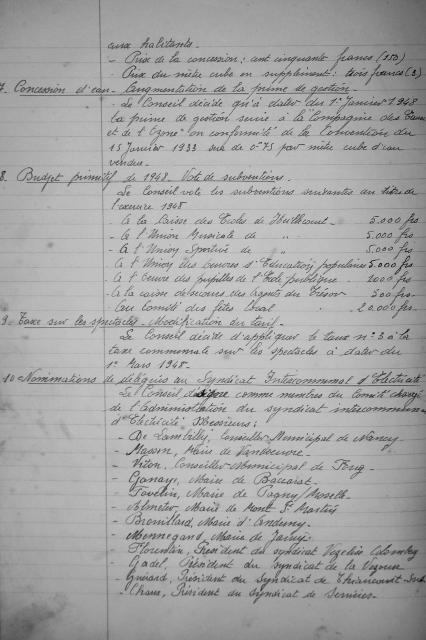 aux habitants.
- Prix de la concession : cent cinquante francs (150)
- Prix du mètre cube en supplément : trois francs (3)
7- Concession d'eau - Augmentation de la prime de gestion.
- Le Conseil décide qu'à dater du 1er Janvier 1948
la prime de gestion servie à la Compagnie des Eaux
et de l'Ozone en conformité de la Convention du
15 Janvier 1933 sera de 0f75 par mètre cube d'eau
vendue.
8. Budget primitif de 1948. Vote de subventions.
Le Conseil vote les subventions suivantes au titre de
l'exercice 1948
- à la Caisse des Ecoles de 5.000 frs
- à l'Union Musicale de " 5.000 frs
- à l'Union Sportive de " 5.000 frs
- à l'Union des Oeuvres d'Education populaires 5.000 frs
- à l'Oeuvre des pupilles de l'Ecole publique - 1000 frs
- à la caisse de secours des Agents du Trésor 500 frs
- au Comité des fêtes local - 20.000 frs.
9- Taxe sur les spectacles. Modification du tarif.
Le Conseil décide d'appliquer le taux n° 3 à la
taxe communale sur les spectacles à dater du
1er Mars 1948.
10- Nominations de délégués au Syndicat Intercommunal d'Electricité
Le Conseil comme membres du Comité chargé
de l'Administration du syndicat intercommunal
d'Electricité, Messieurs :
- De Lambilly, Conseiller Municipal de Nancy.
- Masson, Maire de Vandoeuvre.
- Viton, Conseiller Municipal de Toug -
- Maire de Baccarat.
- Maire de Pagny/Moselle.
- Maire de Mont St Martin
- Brouillard, Maire d'
- Maire de Jarny.
- Florentin, Président du syndicat Vezelise Colombey
- Gadel, Président du Syndicat de la Vezouze
- Guérard, Président du Syndicat de Thiaucourt
- Président du Syndicat de Serrières.